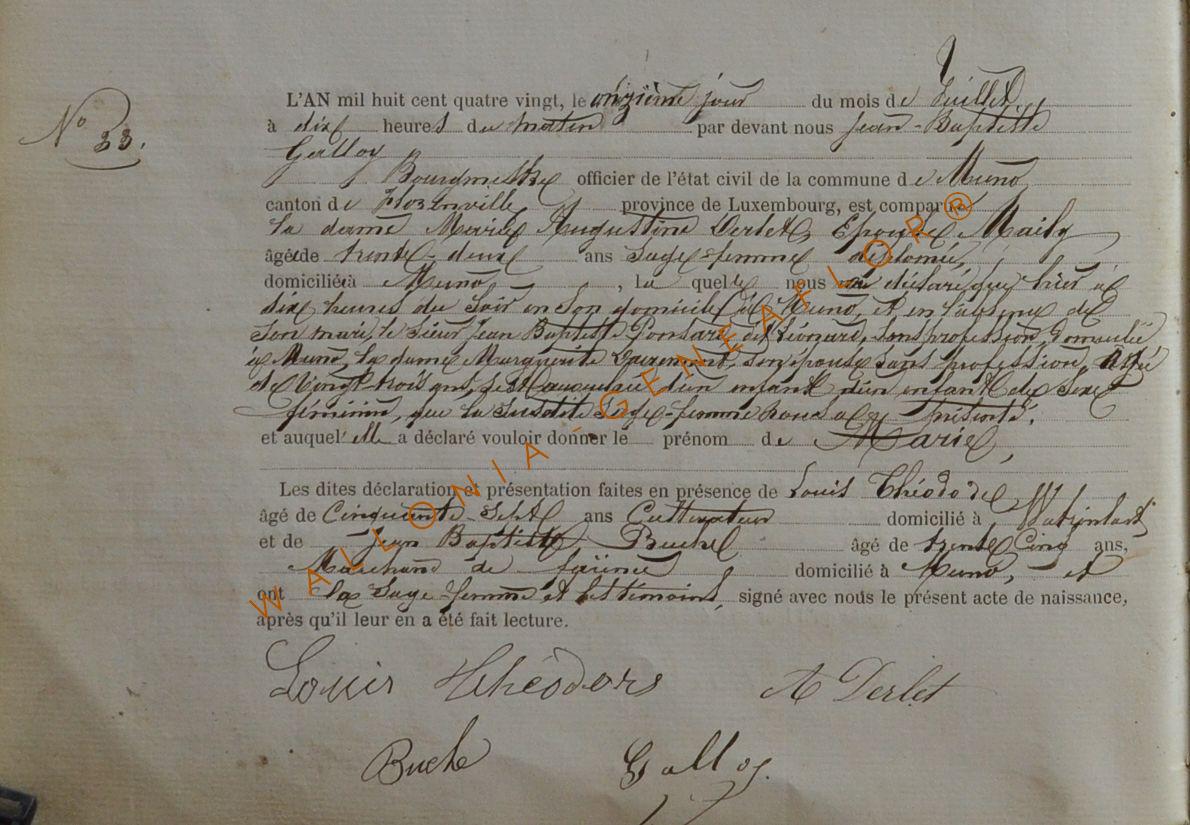 N° 33.
L'AN mil huit cent quatre vingt, le onzième jour du mois de Juillet,
à dix heures du matin par devant nous Jean-Baptiste
Galloy
Bourgmestre officier de l'état civil de la commune de Muno,
canton de Florenville, province de Luxembourg, est comparue
la dame Marie Augustine Derlet, Epouse Maily
âgée de trente-deux ans Sage-femme diplomée,
domiciliée à Muno, la quelle nous a déclaré que hier à
dix heures du Soir en son domicile à Muno, et en l'absence de
son mari, le sieur Jean Baptiste Ponsard dit Léonard, sans profession, domicilié
à Muno, la dame Marguerite son épouse sans profession, âgée
de Vingt-trois ans, est accouchée d'un enfant d'un enfant de Sexe
féminin, que la susdite Sage-femme nous a présenté,
et auquel elle a déclaré vouloir donner le prénom de Marie,
Les dites déclaration et présentation faites en présence de Louis Théodore
âgé de Cinquante-Sept ans Cultivateur domicilié à Watrinsart,
et de Jean Baptiste Buche âgé de trente Cinq ans,
Marchand de farines domicilié à Muno, et
ont la Sage-femme et les témoins, signé avec nous le présent acte de naissance,
après qu'il leur en a été fait lecture.
Louis Théodore A Derlet
Buche Galloy.
WALLONIA-GENEAFLOR®